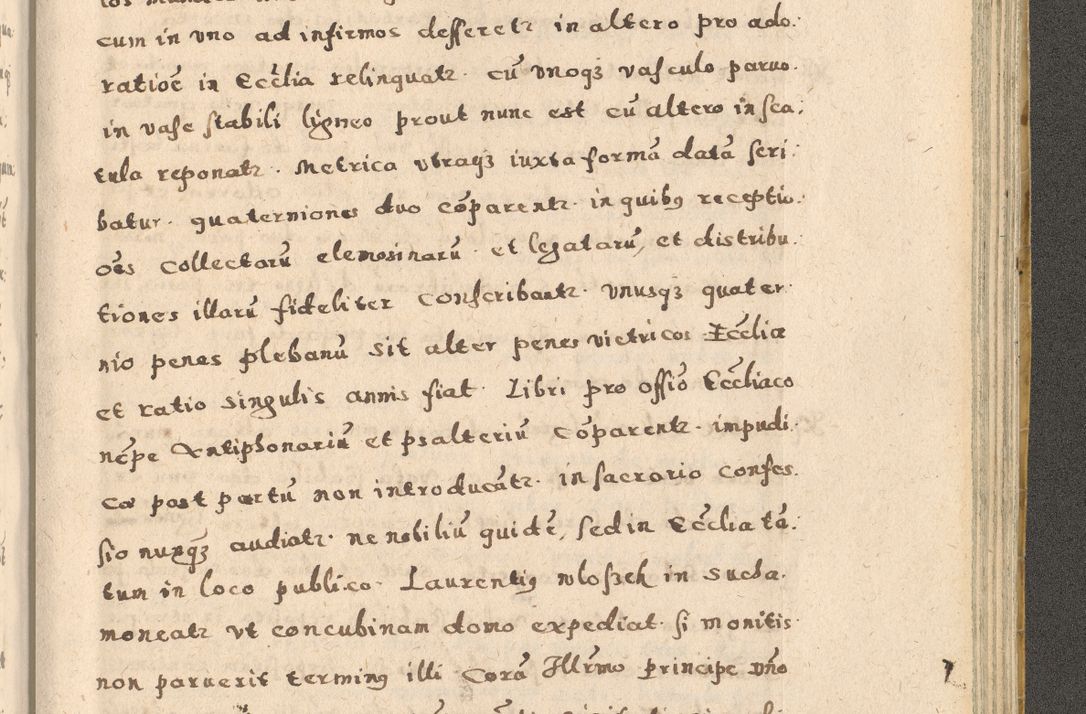 cum in vno ad infirmos defferetr in altero pro ado:
ratioē in Eccłia relinquatr. cū vnoqȝ vasculo paruo.
in vase stabili ligneo prout nunc est cū altero in sca:
tula reponatr. Metrica vtraqȝ iuxta formā datā scri:
batur. quaterniones duo cōparentr. in quibꝯ receptio:
oēs collectarū elemosinarū et legatarū, et distribu:
tiones illarū fideliter conscribantr. vnusqȝ quater.
nio penes plebanū sit alter penes vietricos Eccłiæ
et ratio singulis annis fiat. Libri pro offīo Eccłiaco
nēpe Antiphonariū et psalteriū cōparentr. impudi:
cæ post partū non introducātr. in sacrario confes.
sio nuꝗqȝ audiatr. ne nobiliū quidē, sed in Eccłia tā:
tum in loco publico. Laurentiꝯ wloszek in sucha.
moneatr vt concubinam domo expediat. si monitis
non paruerit terminꝯ illi corā Illr̄mo principe dn̄o